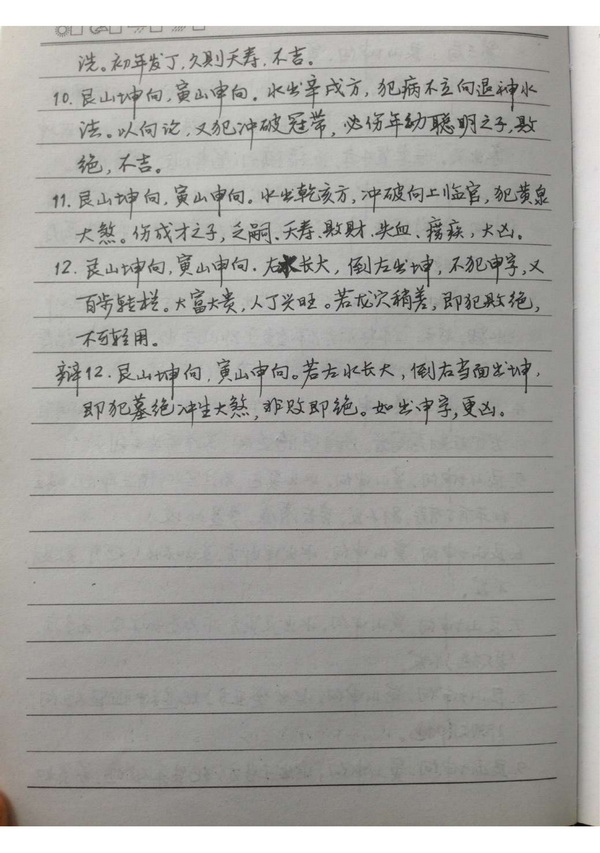 洗。初年发丁,久则夭寿,不吉。
10. 艮山坤向,寅山申向。水出辛戌方,犯病不立向退神水
法。以向论,又犯冲破冠带,必伤年幼聪明之子,败
绝,不吉。
11. 艮山坤向,寅山申向。水出乾亥方,冲破向上临官,犯黄泉
大煞。伤成才之子,乏嗣、夭寿、败财、失血、痨疾,大凶。
12. 艮山坤向,寅山申向。右水长大,倒左出坤,不犯申字,又
百步转栏。大富大贵,人丁兴旺。若龙穴稍差,即犯败绝,
不可轻用。
辩12. 艮山坤向,寅山申向。若左水长大,倒右当面出坤,
即犯墓绝冲生大煞,非败即绝。如出申字,更凶。